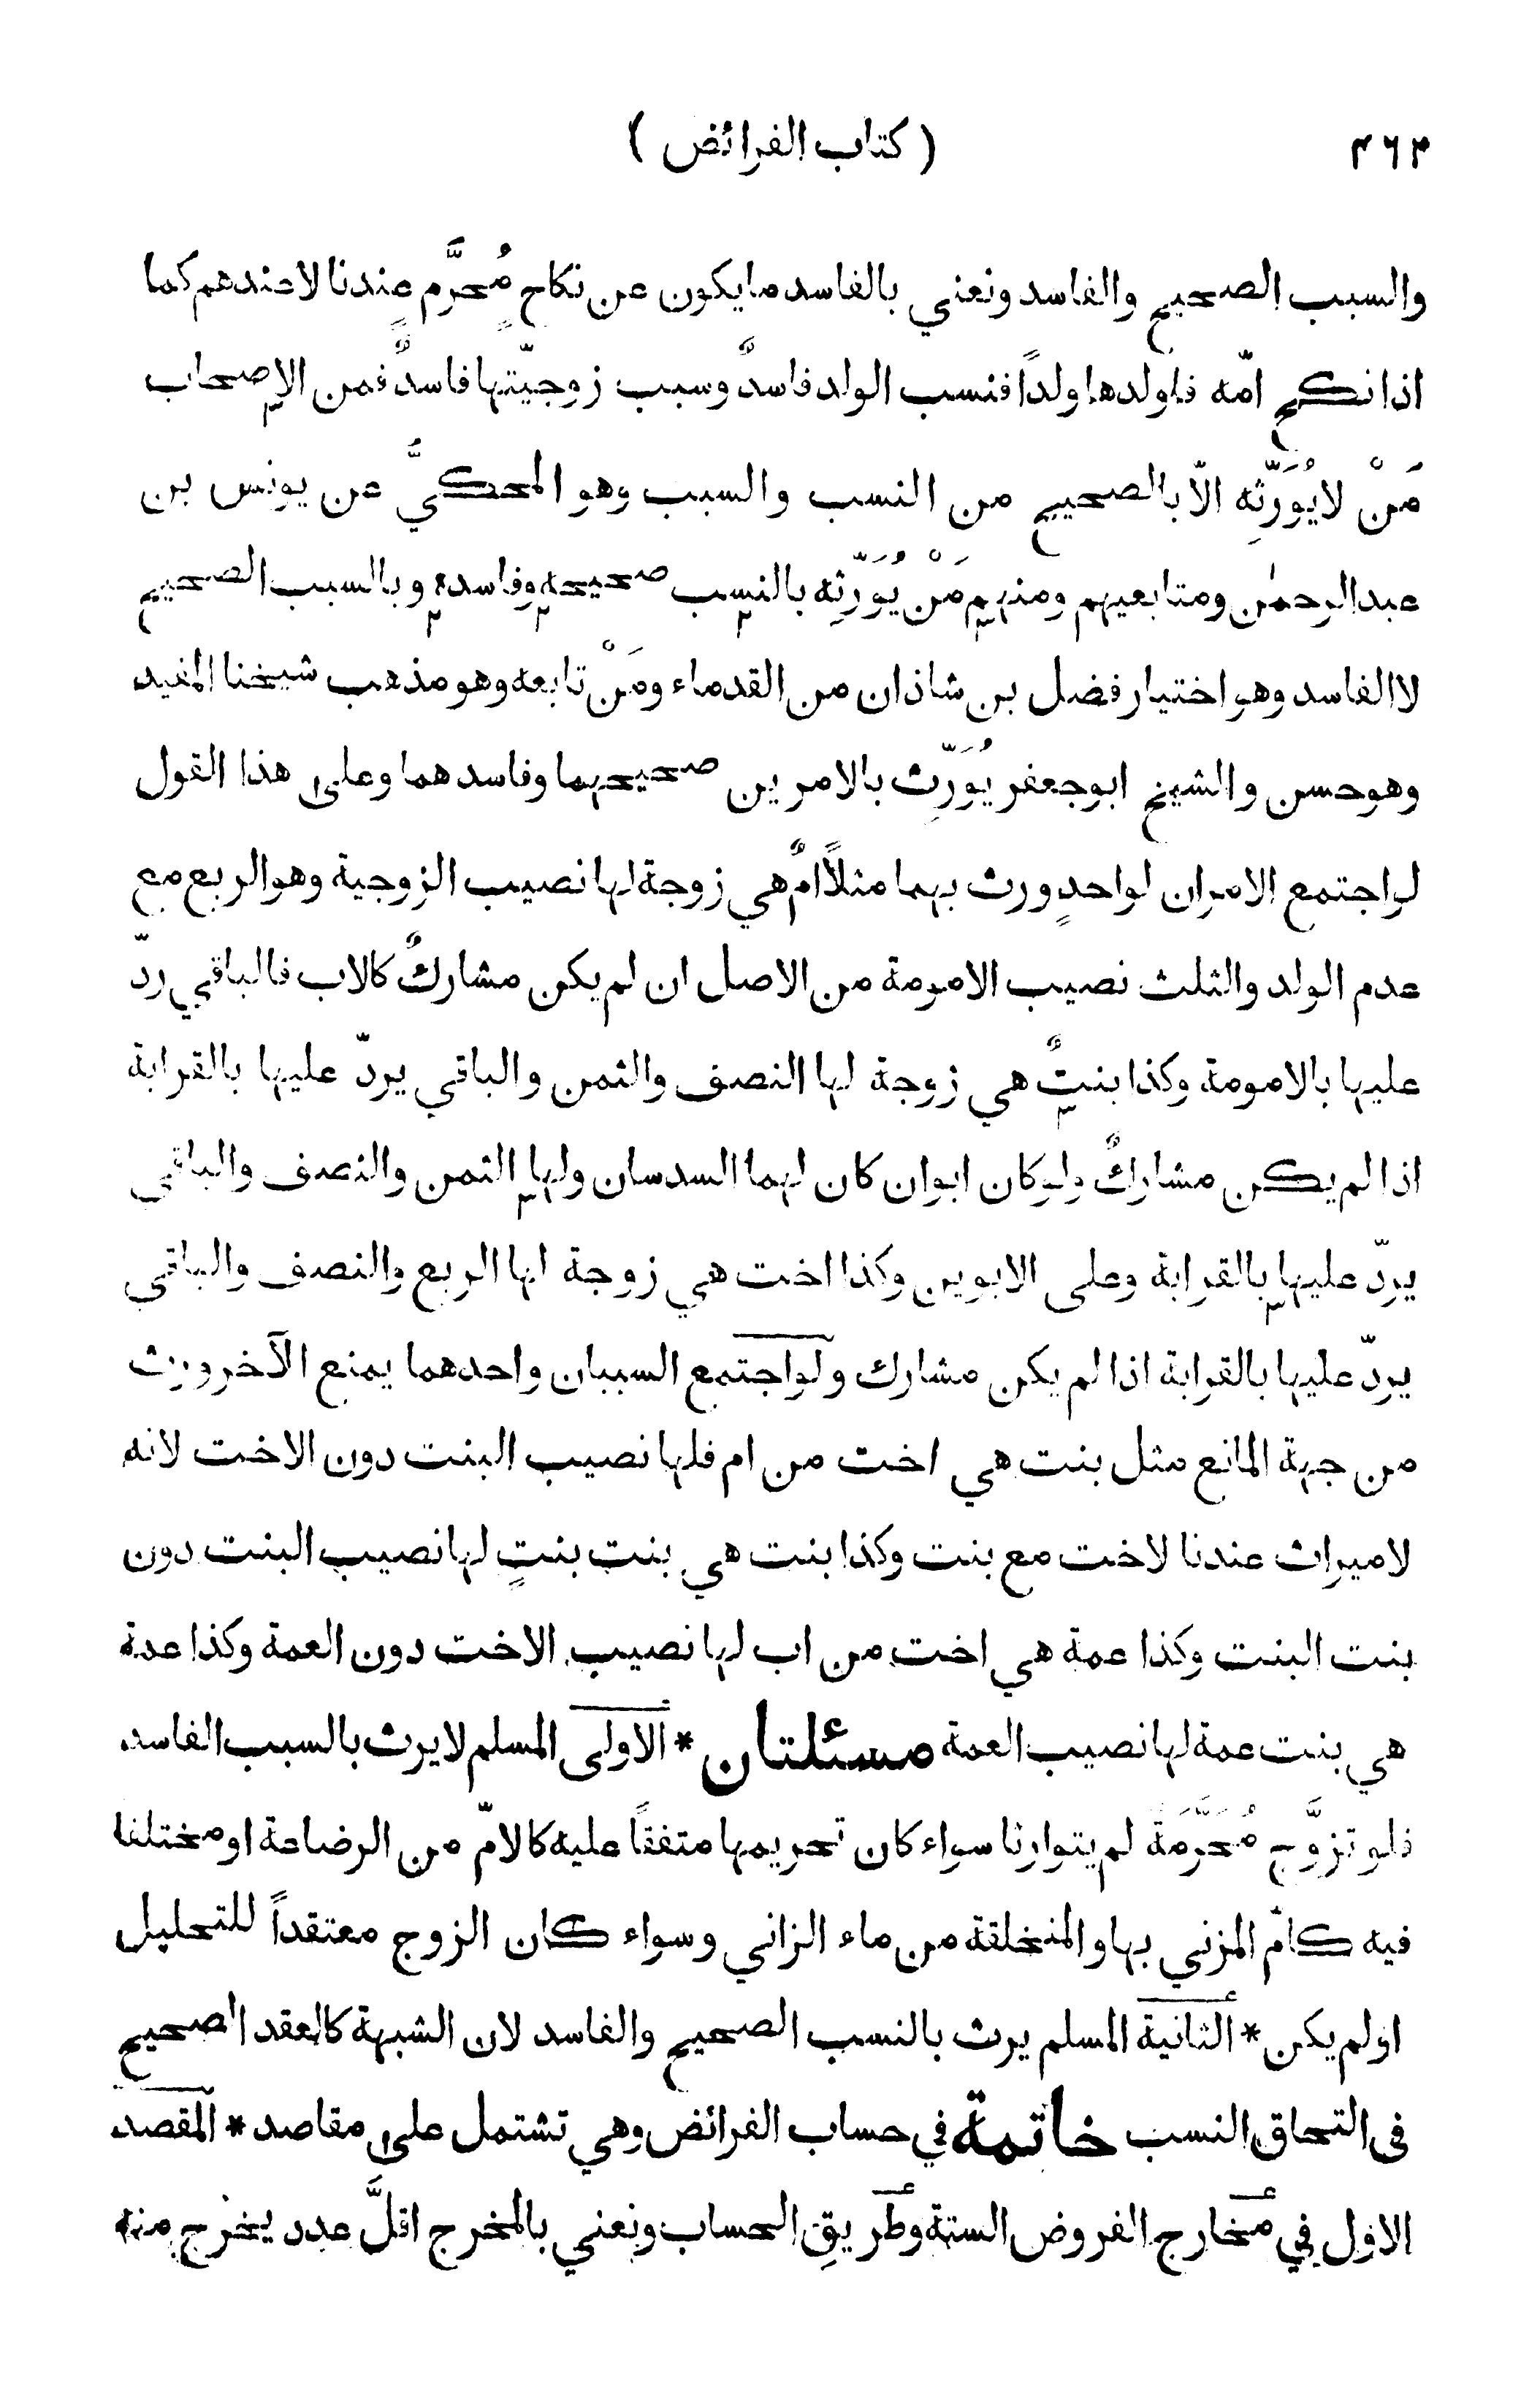 ٤٦٣ ( كتاب الفرائض )
والسبب الصحيح والفاسد ونعني بالفاسد ما يكون عن نكاحٍ مُحرَّمٍ عندنا لا عندهم كما
اذا نكح امّه فاولدها ولداً فنسب الولد فاسدٌ وسبب زوجيّتها فاسدٌ فمن الاصحاب
مَنْ لا يُوَرّثِه الاّ بالصحيح من النسب والسبب وهو المحكيُّ عن يونس بن
عبد الرحمٰن ومتابعيهم ومنهم مَنْ يُوَرّثِه بالنسب صحيحه وفاسده وبالسبب الصحيح
لا الفاسد وهو اختيار فضل بن شاذان من القدماء ومَنْ تابعه وهو مذهب شيخنا المفيد
وهو حسن والشيخ ابو جعفر يُوَرِّث بالامرين صحيحهما وفاسدهما وعلى هذا القول
لو اجتمع الامران لواحدٍ ورث بهما مثلاً امٌ هي زوجة لها نصيب الزوجية وهو الربع مع
عدم الولد والثلث نصيب الامومة من الاصل ان لم يكن مشاركٌ كالاب فالباقي ردّ
عليها بالامومة وكذا بنتٌ هي زوجة لها النصف والثمن والباقي يردّ عليها بالقرابة
اذا لم يكن مشاركٌ ولو كان ابوان كان لهما السدسان ولها الثمن والنصف والباقي
يردّ عليها بالقرابة وعلى الابوين وكذا اخت هي زوجة لها الربع والنصف والباقي
يردّ عليها بالقرابة اذا لم يكن مشارك ولو اجتمع السببان واحدهما يمنع الآخر ورث
من جهة المانع مثل بنت هي اخت من ام فلها نصيب البنت دون الاخت لانه
لا ميراث عندنا لاخت مع بنت وكذا بنت هي بنت بنتٍ لها نصيب البنت دون
بنت البنت وكذا عمة هي اخت من اب لها نصيب الاخت دون العمة وكذا عمة
هي بنت عمة لها نصيب العمة مسئلتان * الاولى المسلم لا يرث بالسبب الفاسد
فلو تزوَّج مُحَرَّمَةً لم يتوارثا سواء كان تحريمها متفقاً عليه كالامّ من الرضاعة او مختلفا
فيه كامّ المزني بها والمنخلقة من ماء الزاني وسواء كان الزوج معتقداً للتحليل
او لم يكن * الثانية المسلم يرث بالنسب الصحيح والفاسد لان الشبهة كالعقد الصحيح
فى التحاق النسب خاتمة في حساب الفرائض وهي تشتمل على مقاصد * المقصد
الاول في مخارج الفروض الستة وطريقِ الحساب ونعني بالمخرج اقلَّ عدد يخرج منه